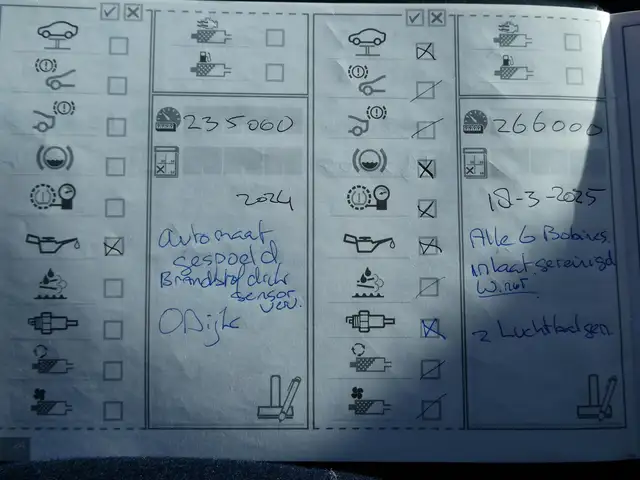 235000
2024
automaat
gespoeld
Brandstof druk
sensor
verv.
O Dijk
266000
18-3-2025
Alle 6 Bobines
inlaat gereinigd
2 Luchtbalgen